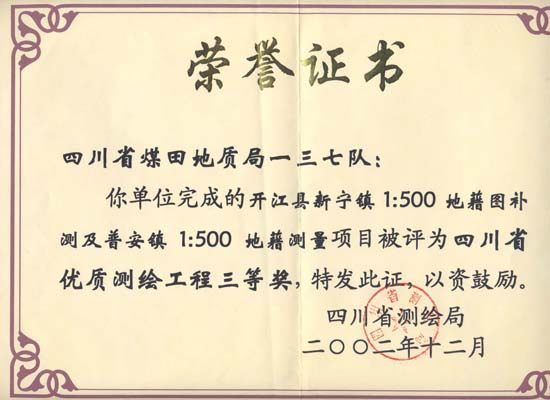 荣誉证书
四川省煤田地质局一三七队：
你单位完成的开江县新宁镇1:500 地藉图补
测及普安镇 1:500 地藉测量项目被评为四川省
优质测绘工程三等奖，特发此证，以资鼓励。
四川省测绘局
二〇〇二年十二月